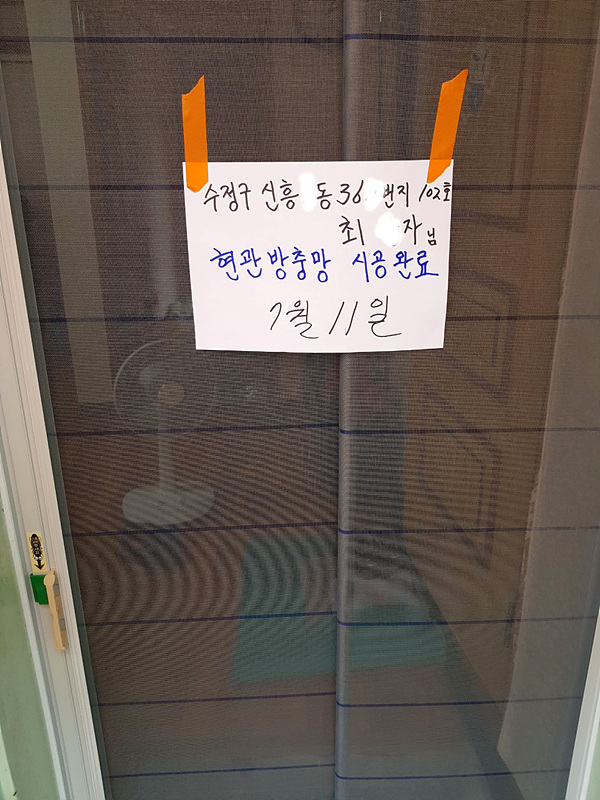 수정구 신흥 동 36 번지 102호
최 자님
현관방충망 시공완료
7월 11일